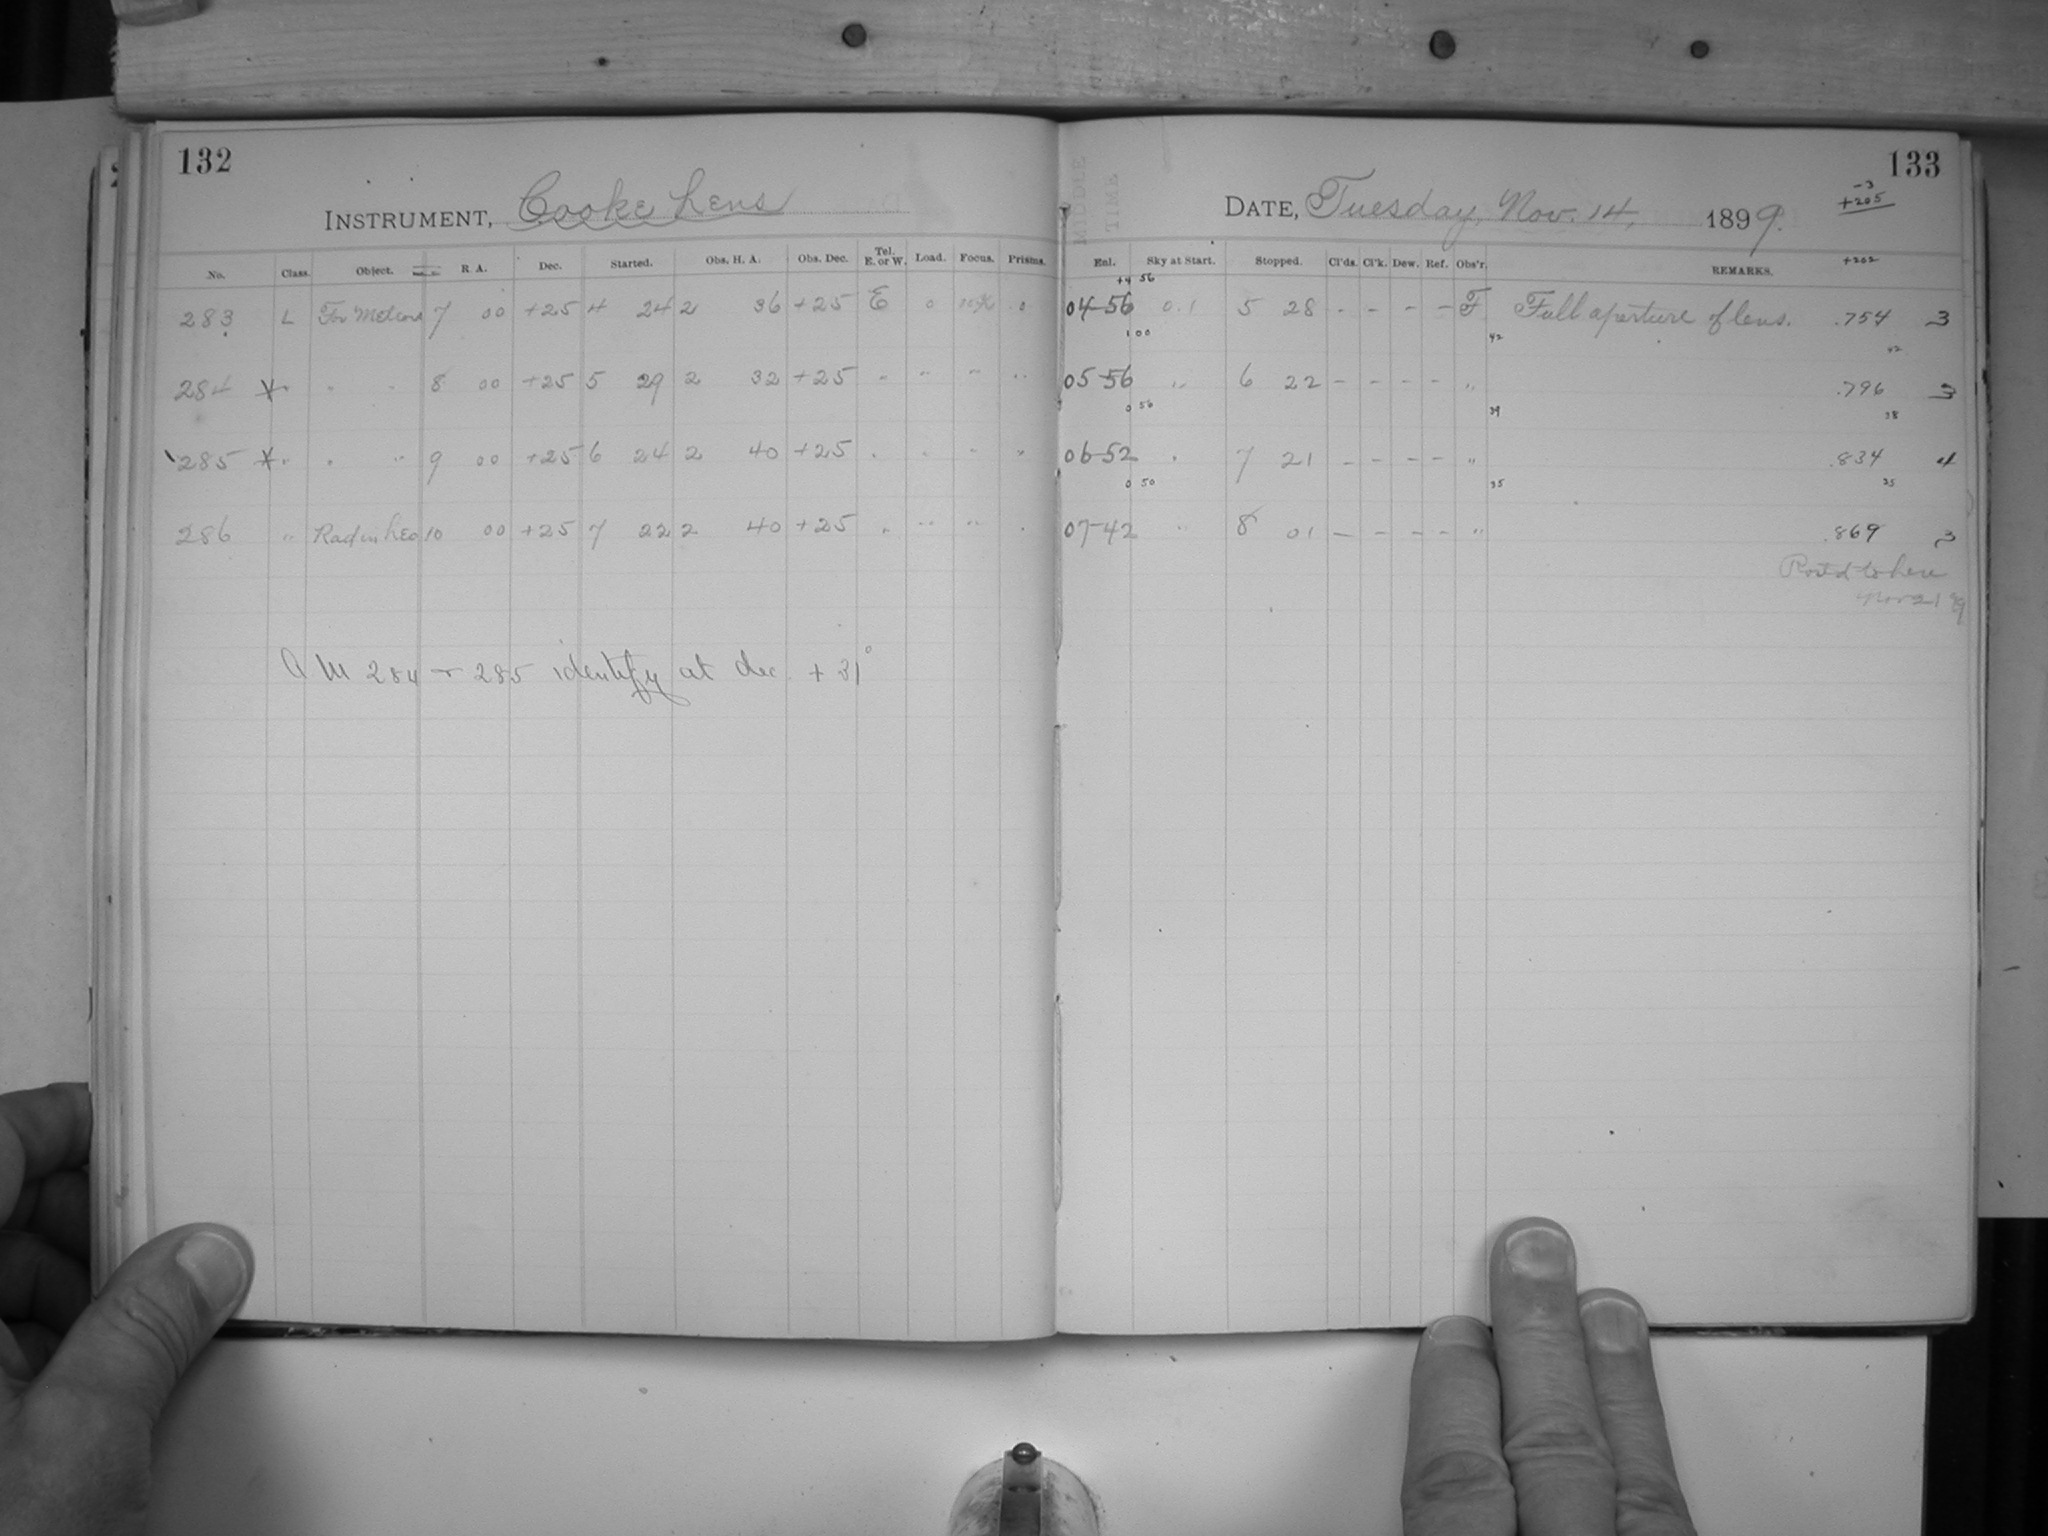 132
INSTRUMENT, Cooke Lens
No. Class. Object. R. A. Dec. Started. Obs. H. A. Obs. Dec. Tel. E. or W. Load. Focus. Prisms.
283 L For Meteors 7 00 +25 4 24 2 36 +25 E 0 0
284 * " " " 8 00 +25 5 29 2 32 +25 " " " "
285 * " " " 9 00 +25 6 24 2 40 +25 " " " "
286 " Rad in Leo 10 00 +25 7 22 2 40 +25 " " " "
A M 284 + 285 identify at dec. + 31°
133
-3
+205
DATE, Tuesday, Nov. 14, 1899.
MIDDLE TIME
+202
Enl. Sky at Start. Stopped. Cl'ds. Cl'k. Dew. Ref. Obs'r. REMARKS.
+4 56
04-56 0.1 5 28 - - - - F Full aperture of lens. .754 3
1 00 42 42
05-56 " 6 22 - - - - " .796 3
0 56 39 38
06-52 " 7 21 - - - - " .834 4
0 50 35 35
07-42 " 8 01 - - - - " .869 3
Post'd to here
Nov 21 99